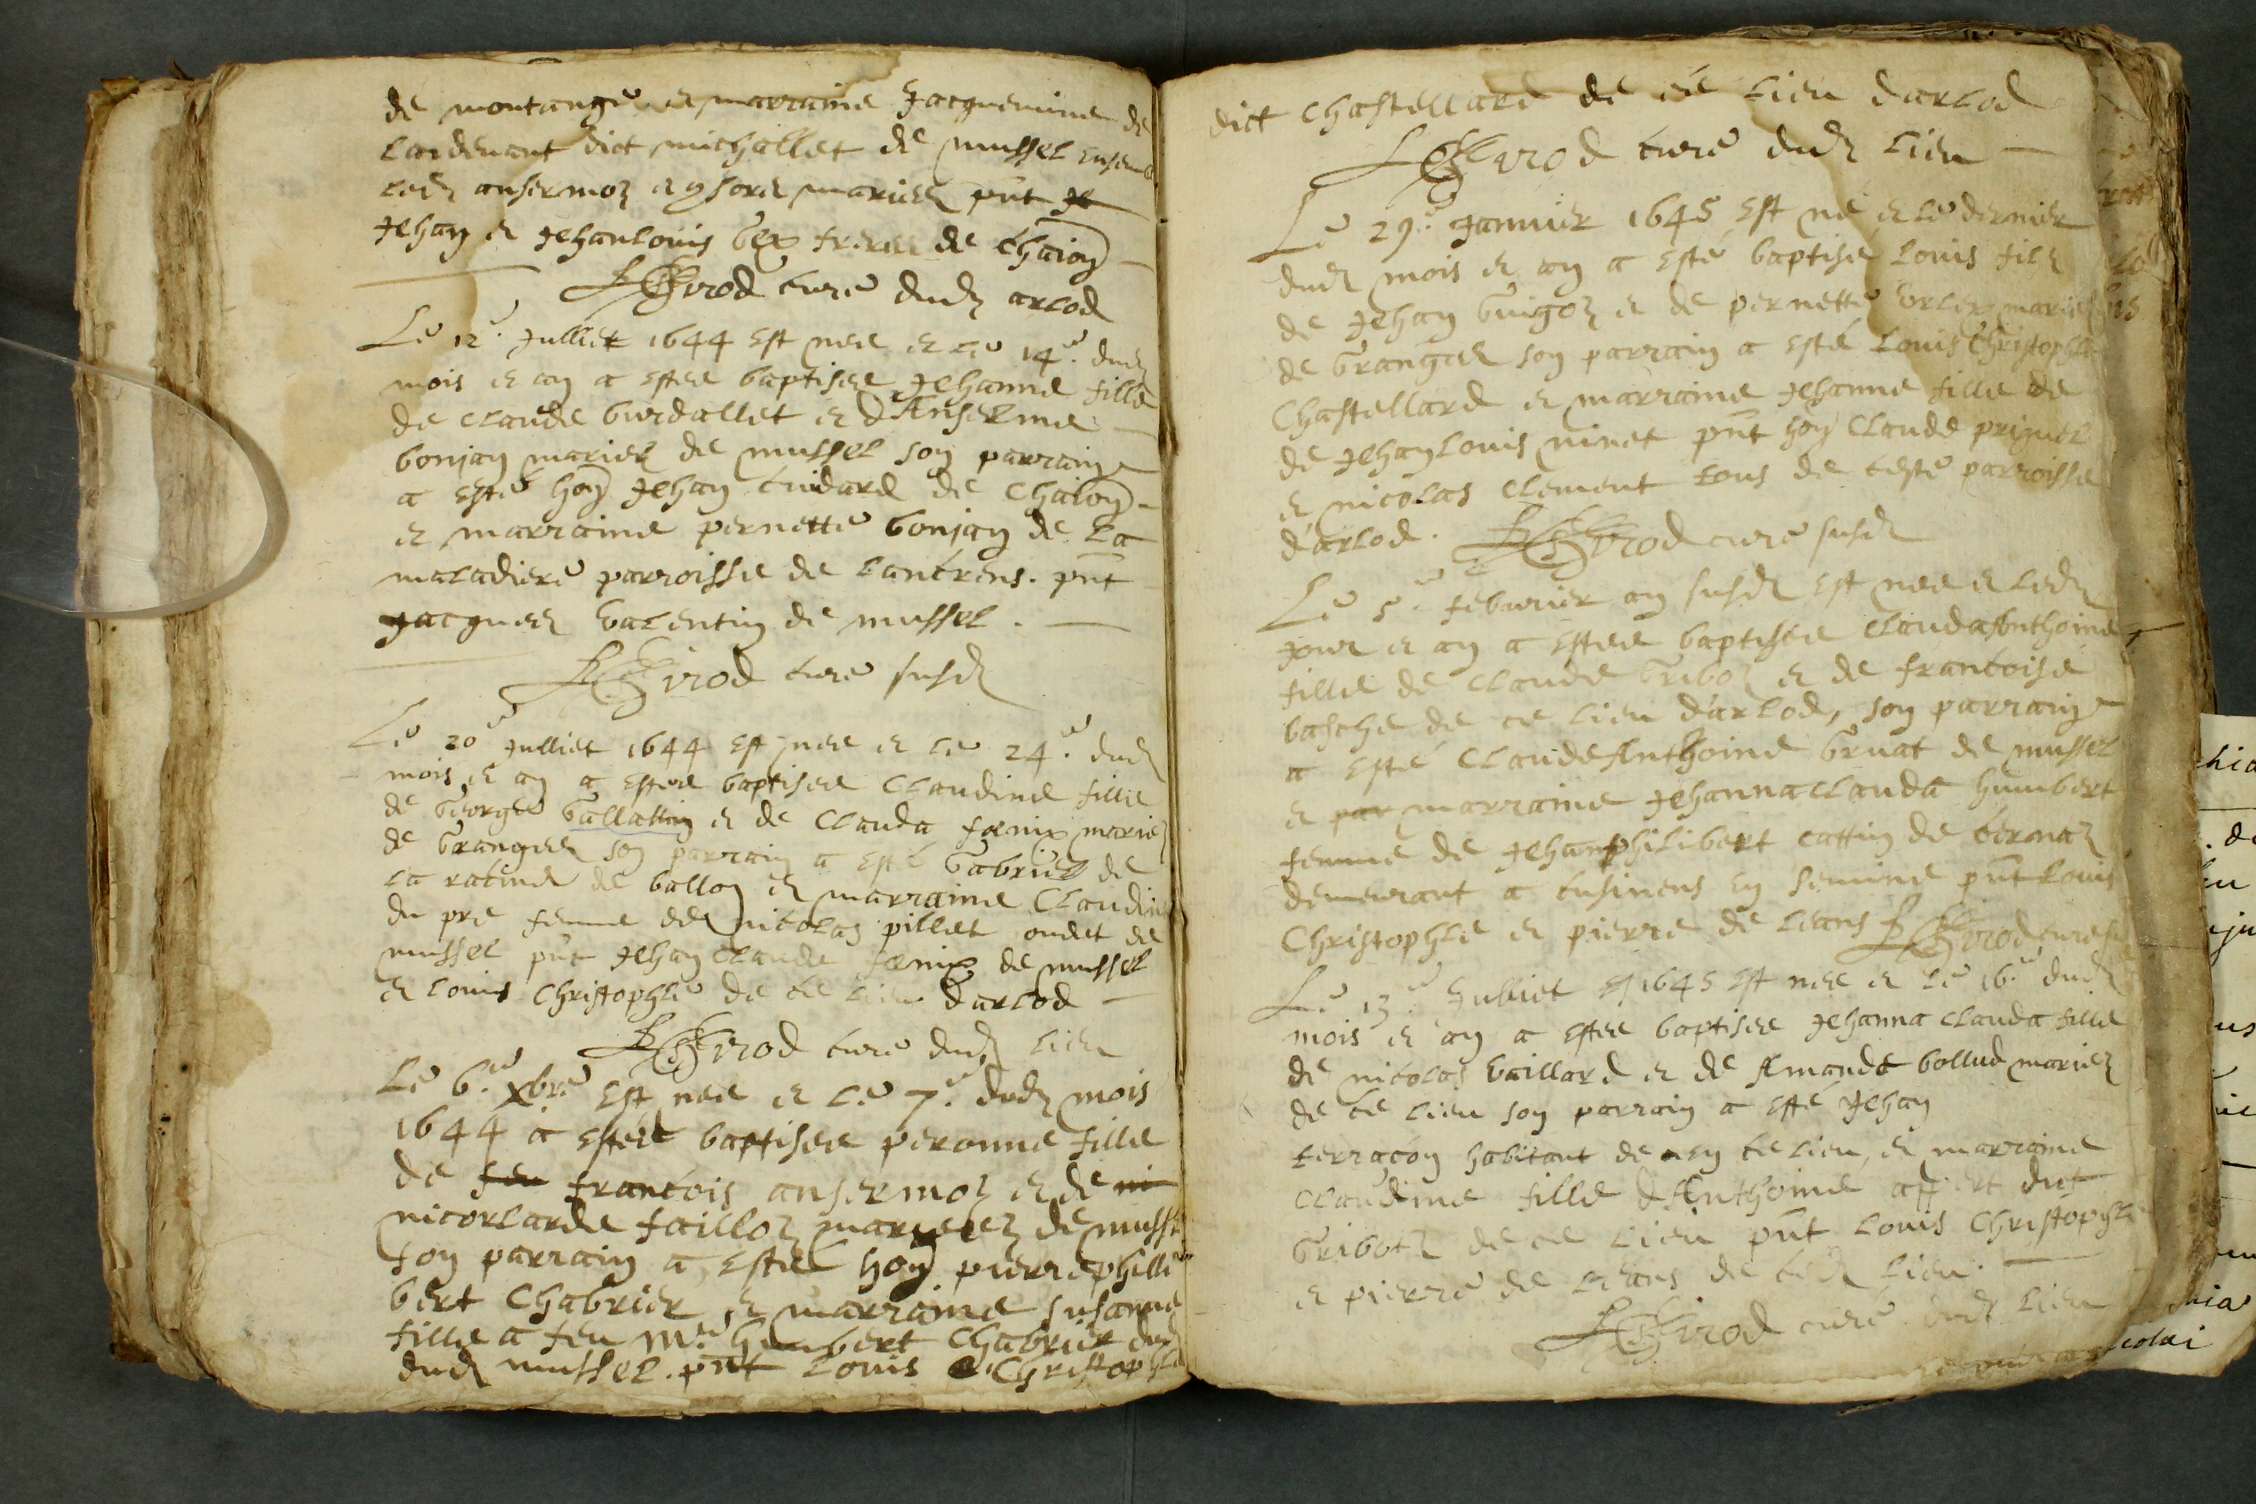 de montange et marraine Jacquemine de
Lardenant dict michallet de mussel ensemb
ledz ansermoz et marier pnt Je
Jehan et Jehanlouis Gex freres de Chaion
Girod curé dudz arlod
Le 12e. Julliet 1644 est nee et le 14e. dudz
mois et an a estee baptisee Jehanne fille
de Claude burdallet et d'Anserme
bonjan mariez de mussel son parrain
a esté hon Jehan cudard de Chaion
et marraine pernette bonjan de La
maladiere parroisse de Lancrens. pnt
Jacques valentin de mussel.
Girod curé susdz
Le 20e Julliet 1644 est nee et le 24e. dudz
mois et an a estee baptisee Claudine fille
de George Gallattin et de Clauda foenix mariez
de Granges son parrain a esté Gabriel de
la racine de ballon et marraine Claudine
du pre femme de nicolas pilliet oudet de
mussel pnt Jehan Claude foenix de mussel
et Louis Christophle de ce lieu d'arlod
Girod curé dudz lieu
Le 6e. xbre est nee et le 7e. dudz mois
1644 a esteé baptisee peronne fille
de feu francois ansermoz et de ni
nicorlarde tailloz mariez de mussel
son parrain a esté hon pierrephilli
bert Chabrier et marraine susanne
fille a feu Mre humbert Chabrier dudz
dudz mussel. pnt Louis Christophle
dict Chastellard de ce lieu d'arlod
Girod curé dudz lieu
Le 29e. Janvier 1645 est né et le dernier
dudz mois et an a esté baptisé Louis filz
de Jehan Guigoz et de pernette mariez
de Granges son parrain a esté Louis Christophle
Chastellard et marraine Jehanne fille de
de Jehanlouis ninet pnt hon Claude
et nicolas Clement tous de ceste parroisse
d'arlod. Girod curé susdz
Le 5e. febvrier an susdz est nee et ledz
jour et an a estee baptisée ClaudaAnthoine
fille de Claude Griboz et de francoise
basche de ce lieu d'arlod, son parrain
a esté ClaudeAnthoine Gruat de mussel
et par marraine Jehannaclauda humbert
femme de Jehanphilibert cattin de
demeurant a cusinens en semine pnt Louis
Christophle et pierre de Leans Girod curé
Le 13e. Julliet 1645 est nee et le 16e. dudz
mois et an a estee baptisee Jehanna clauda fille
de nicolas vaillard et de Amande bollud mariez
de ce lieu son parrain a esté Jehan
terracon habitant de en ce lieu, et marraine
Claudine fille d'Anthoine dict
Gribotz de ce lieu pnt Louis Christophle
et pierre de Leans de cedz lieu.
Girod curé dudz lieu